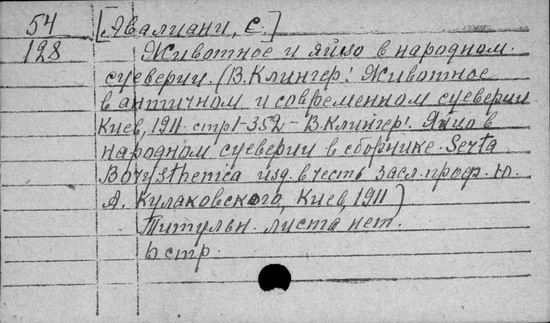 54 [Авалиани, С.]
128 Животное и яйцо в народном
суеверии. (В. Клингер: Животное
в античном и современном суеверии
Киев, 1911. стр 1-352 - В. Клингер: Яйцо в
народном суеверии в сборнике. Serta
Borysthenica изд. в честь засл. проф. Ю.
А. Кулаковского, Киев, 1911)
Титульн. листа нет.
6 стр.